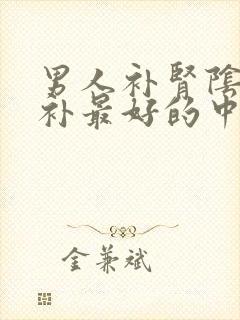 男人补腎陰
补最好的中
金兼斌